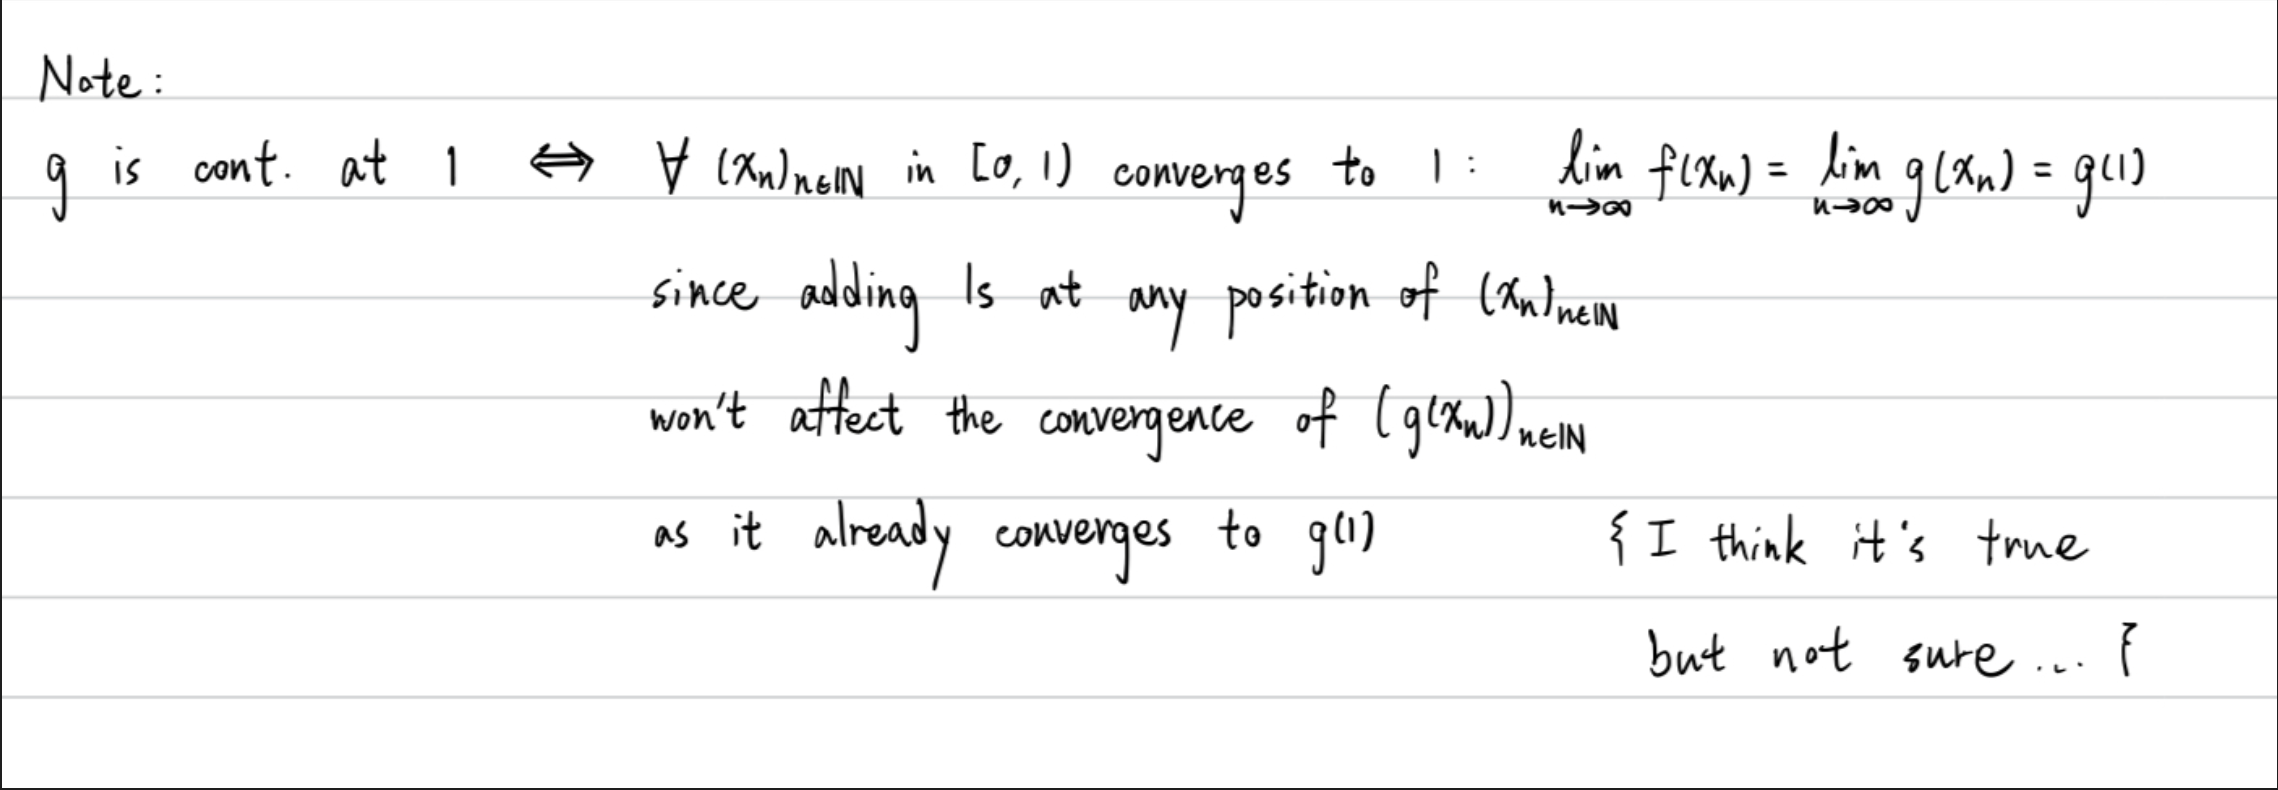 Note:
g is cont. at 1 ⇔ ∀ (xₙ)ₙ∈ℕ in [0, 1) converges to 1: lim n→∞ f(xₙ) = lim n→∞ g(xₙ) = g(1)
since adding 1s at any position of (xₙ)ₙ∈ℕ
won't affect the convergence of (g(xₙ))ₙ∈ℕ
as it already converges to g(1) { I think it's true
but not sure... }